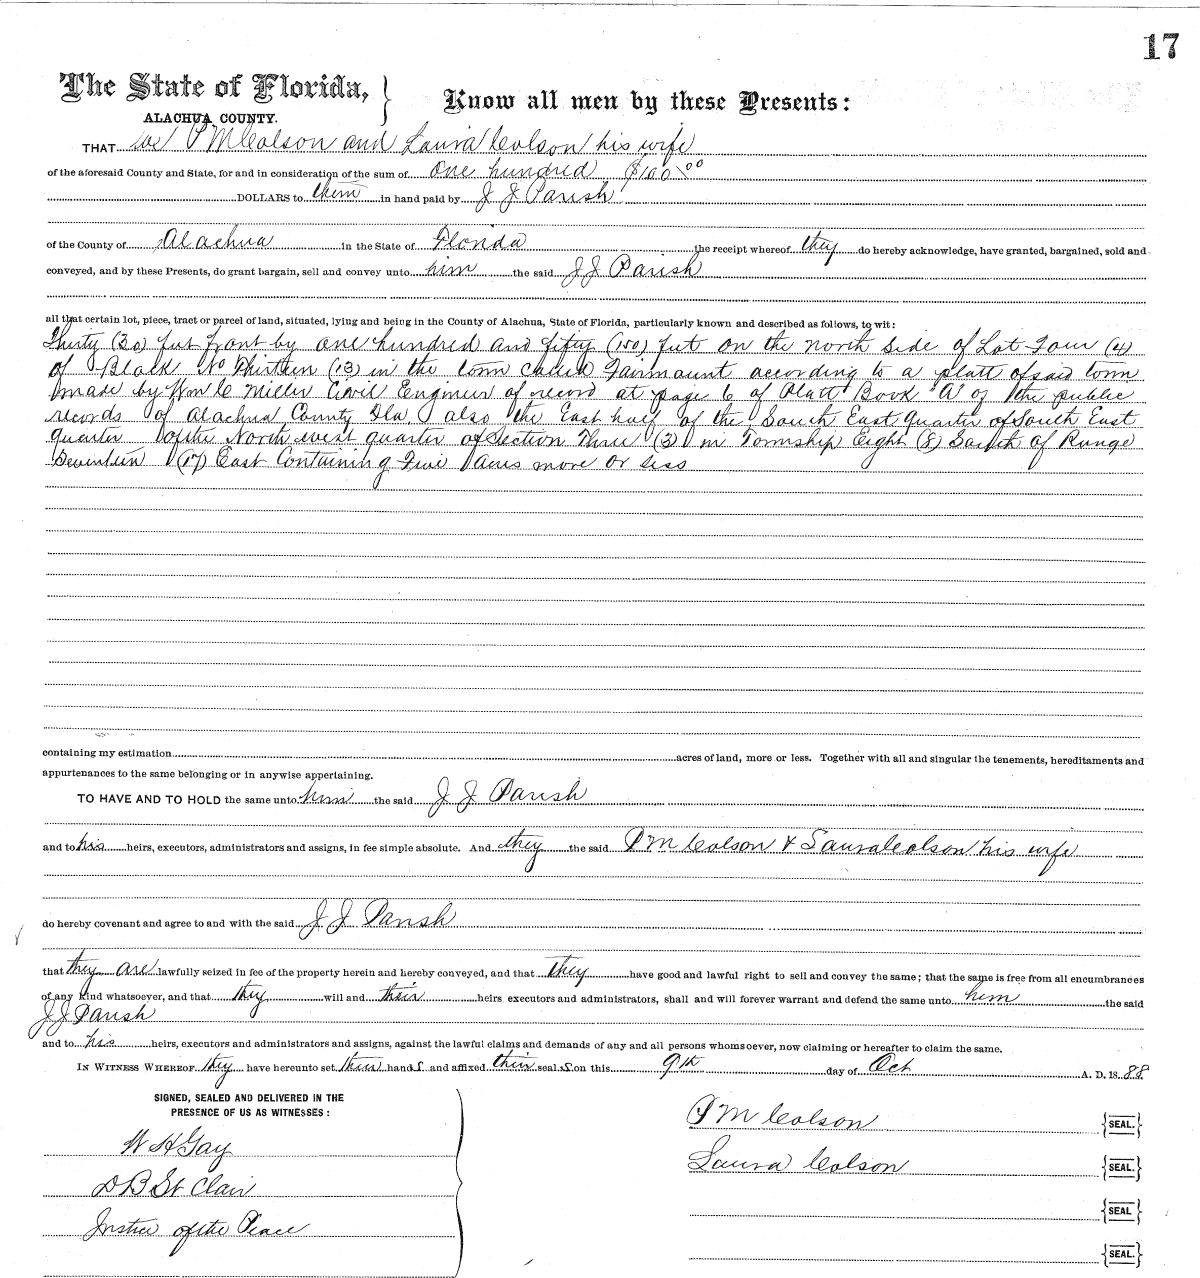 17
The State of Florida, } Know all men by these Presents:
ALACHUA COUNTY.
THAT we P M Colson and Laura Colson his wife
of the aforesaid County and State, for and in consideration of the sum of one hundred $100.00
DOLLARS to them in hand paid by J J Parish
of the County of Alachua in the State of Florida the receipt whereof they do hereby acknowledge, have granted, bargained, sold and
conveyed, and by these Presents, do grant bargain, sell and convey unto him the said J J Parish
all that certain lot, piece, tract or parcel of land, situated, lying and being in the County of Alachua, State of Florida, particularly known and described as follows, to wit:
Thirty (30) feet front by one hundred and fifty (150) feet on the north side of Lot Four (4)
of Block No Thirteen (13) in the town called Fairmount according to a platt of said town
made by Wm C Miller Civil Engineer of record at page 6 of Platt Book "A" of the public
records of Alachua County Fla. also the East half of the South East Quarter of South East
quarter of the North west quarter of Section Three (3) in Township Eight (8) South of Range
Seventeen (17) East Containing Five Acres more or less
containing my estimation acres of land, more or less. Together with all and singular the tenements, hereditaments and
appurtenances to the same belonging or in anywise appertaining.
TO HAVE AND TO HOLD the same unto him the said J J Parish
and to his heirs, executors, administrators and assigns, in fee simple absolute. And they the said P M Colson & Laura Colson his wife
do hereby covenant and agree to and with the said J J Parish
that they are lawfully seized in fee of the property herein and hereby conveyed, and that they have good and lawful right to sell and convey the same; that the same is free from all encumbrances
of any kind whatsoever, and that they will and their heirs, executors and administrators, shall and will forever warrant and defend the same unto him the said
J J Parish
and to his heirs, executors and administrators and assigns, against the lawful claims and demands of any and all persons whomsoever, now claiming or hereafter to claim the same.
IN WITNESS WHEREOF they have hereunto set their hands and affixed their seals on this 9th day of Oct A. D. 18 88
SIGNED, SEALED AND DELIVERED IN THE
PRESENCE OF US AS WITNESSES:
P M Colson {SEAL.}
W H Gay
Laura Colson {SEAL.}
D B St Clair
{SEAL}
Justice of the Peace
{SEAL.}